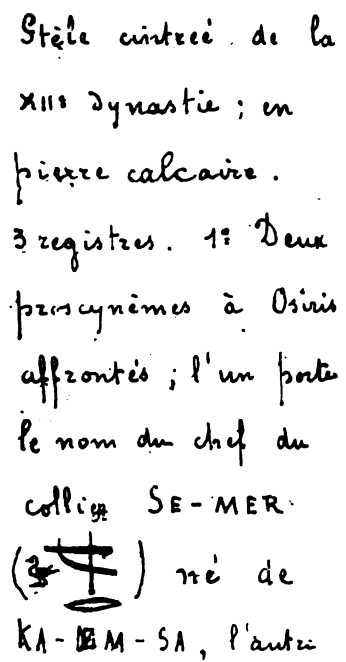 Stèle cintreé de la
XIIe Dynastie ; en
pierre calcaire.
3 registres. 1º Deux
proscynèmes à Osiris
affrontés ; l'un porte
le nom du chef du
collier SE-MER
( ) né de
KA-EM-SA, l'autre